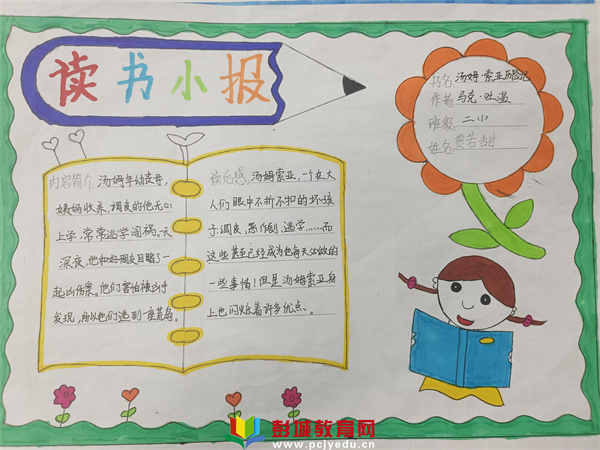 读书小报
书名:汤姆·索亚历险记
作者:马克·吐温
班级:二小
姓名:
内容简介:汤姆年幼丧母,
姨妈收养,调皮的他无心
上学,常常逃学闯祸。一天
深夜,他和好朋友目睹了一
起凶伤案。他们害怕被凶手
发现,所以他们逃到一座荒岛。
读后感:汤姆索亚,一个在大
人们眼中不折不扣的坏孩
子:调皮、恶作剧、逃学……而
这些甚至已经成为他每天必做的
一些事情!但是汤姆索亚身
上也闪烁着许多优点。
彭城教育网
www.pcjyedu.cn